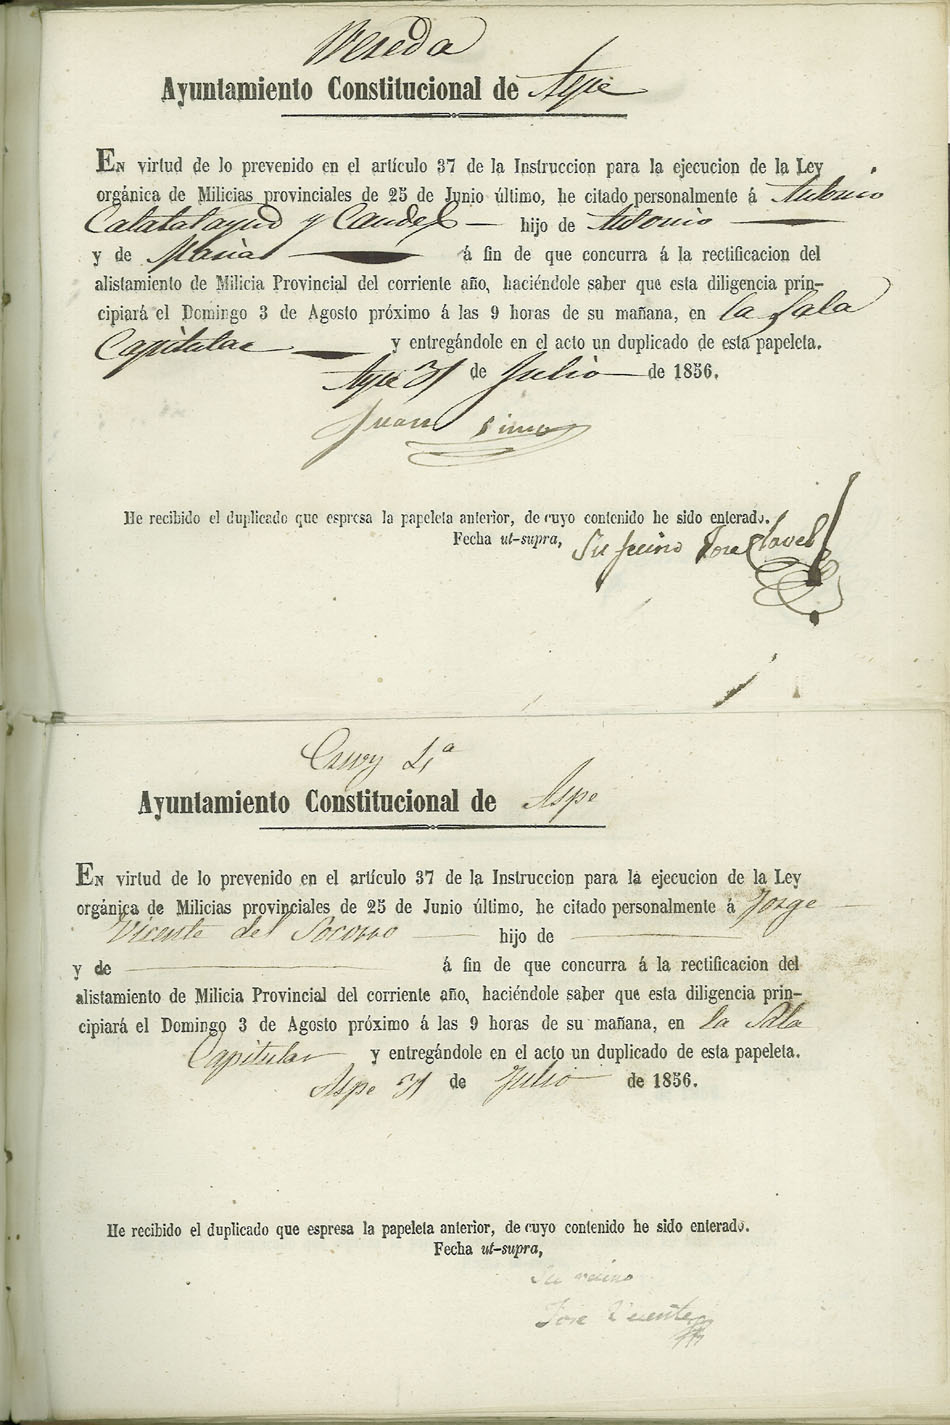 Vereda
Ayuntamiento Constitucional de Aspe
En virtud de lo prevenido en el artículo 37 de la Instruccion para la ejecucion de la Ley
orgánica de Milicias provinciales de 25 de Junio último, he citado personalmente á Antonio
Calatalayud y Candel hijo de Antonio
y de Maria á fin de que concurra á la rectificacion del
alistamiento de Milicia Provincial del corriente año, haciéndole saber que esta diligencia prin-
cipiará el Domingo 3 de Agosto próximo á las 9 horas de su mañana, en la Sala
Capitular y entregándole en el acto un duplicado de esta papeleta.
Aspe 31 de Julio de 1856.
Juan
He recibido el duplicado que espresa la papeleta anterior, de cuyo contenido he sido enterado.
Fecha ut-supra,
Su Jose Clavel
Ayuntamiento Constitucional de Aspe
En virtud de lo prevenido en el artículo 37 de la Instruccion para la ejecucion de la Ley
orgánica de Milicias provinciales de 25 de Junio último, he citado personalmente á Jorge
Vicente del Socorro hijo de
y de á fin de que concurra á la rectificacion del
alistamiento de Milicia Provincial del corriente año, haciéndole saber que esta diligencia prin-
cipiará el Domingo 3 de Agosto próximo á las 9 horas de su mañana, en la Sala
Capitular y entregándole en el acto un duplicado de esta papeleta.
Aspe 31 de Julio de 1856.
He recibido el duplicado que espresa la papeleta anterior, de cuyo contenido he sido enterado.
Fecha ut-supra,
Su vecino
Jose Vicente